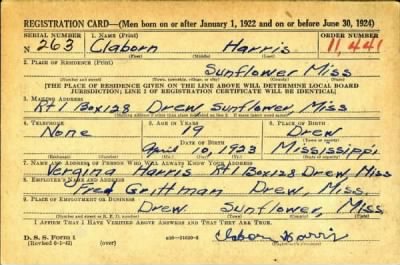 REGISTRATION CARD—(Men born on or after January 1, 1922 and on or before June 30, 1924)
SERIAL NUMBER 1. NAME (Print) ORDER NUMBER
N 263 Claborn Harris 11,441
(First) (Middle) (Last)
2. PLACE OF RESIDENCE (Print)
Sunflower Miss
(Number and street) (Town, township, village, or city) (County) (State)
[THE PLACE OF RESIDENCE GIVEN ON THE LINE ABOVE WILL DETERMINE LOCAL BOARD
JURISDICTION; LINE 2 OF REGISTRATION CERTIFICATE WILL BE IDENTICAL]
3. MAILING ADDRESS
Rt 1 Box 128 Drew Sunflower, Miss
[Mailing address if other than place indicated on line 2. If same insert word same]
4. TELEPHONE 5. AGE IN YEARS 6. PLACE OF BIRTH
None 19 Drew
DATE OF BIRTH
April 10, 1923 Mississippi
7. NAME AND ADDRESS OF PERSON WHO WILL ALWAYS KNOW YOUR ADDRESS
Vergina Harris Rt 1 Box 128 Drew, Miss
8. EMPLOYER'S NAME AND ADDRESS
Fred Grittman Drew, Miss.
9. PLACE OF EMPLOYMENT OR BUSINESS
Drew Sunflower, Miss.
(Number and street or R. F. D. number) (Town) (County) (State)
I AFFIRM THAT I HAVE VERIFIED ABOVE ANSWERS AND THAT THEY ARE TRUE.
D. S. S. Form 1
(Revised 6-1-42) (over)
Claborn Harris